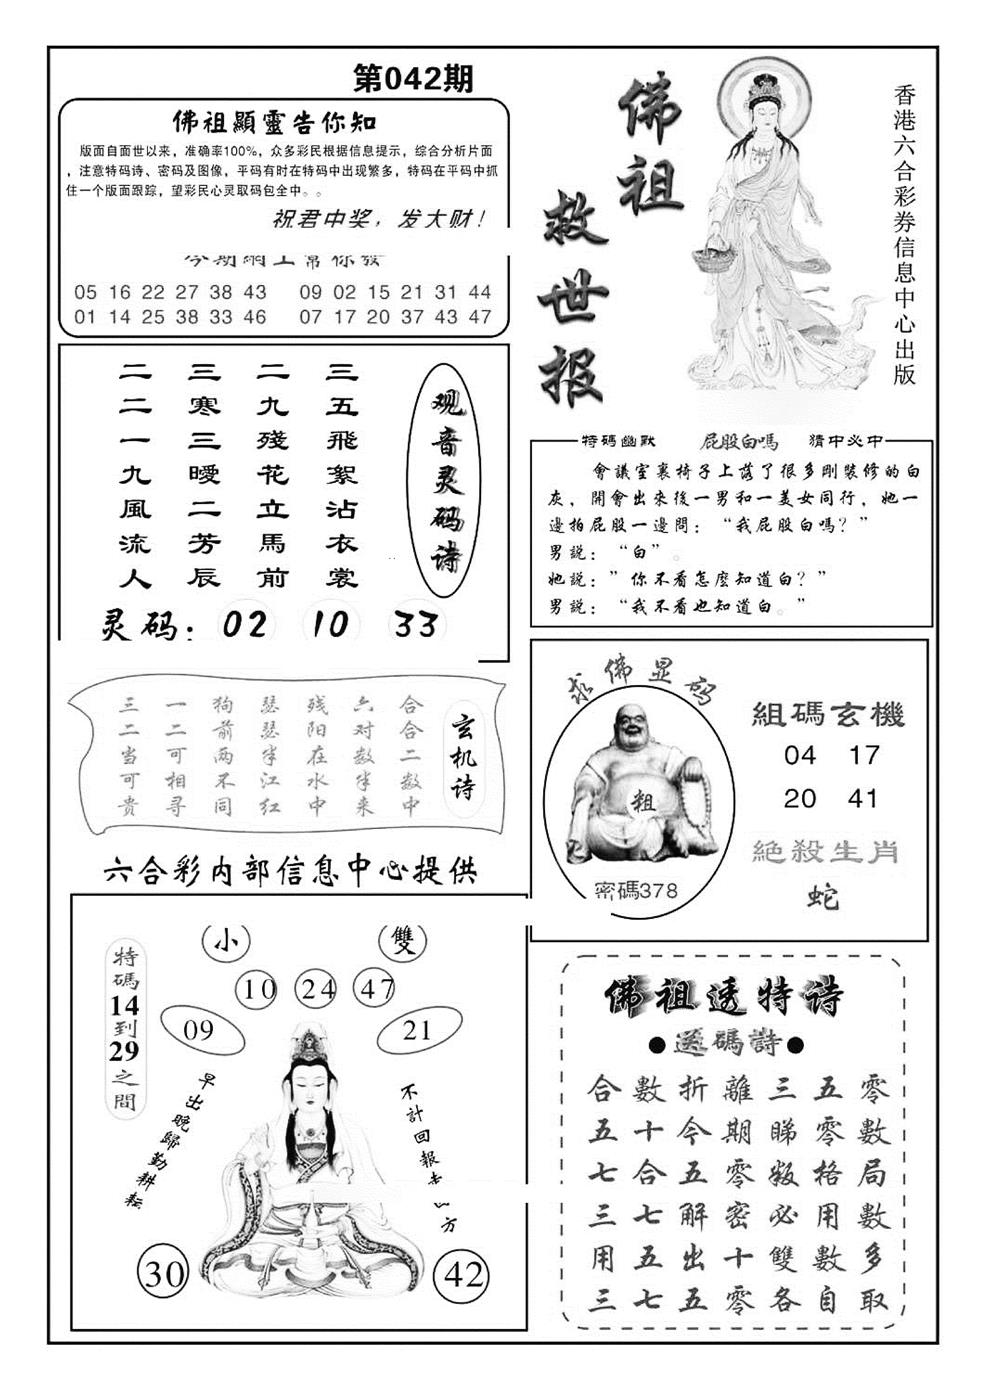 第042期
佛祖顯靈告你知
版面自面世以来，准确率100%，众多彩民根据信息提示，综合分析片面
，注意特码诗、密码及图像，平码有时在特码中出现繁多，特码在平码中抓
住一个版面跟踪，望彩民心灵取码包全中。。
祝君中奖，发大财！
05 16 22 27 38 43 09 02 15 21 31 44
01 14 25 38 33 46 07 17 20 37 43 47
佛祖
救世报
香港六合彩券信息中心出版
观音灵码诗
三五飛絮沾衣裳
二九殘花立馬前
三寒三曖二芳辰
二二一九風流人
灵码：02 10 33
特碼幽默 屁股白嗎 猜中必中
會議室裏椅子上落了很多剛裝修的白
灰，開會出來後一男和一美女同行，她一
邊拍屁股一邊問：“我屁股白嗎？”
男説：“白”。
她説：”你不看怎麼知道白？”
男説：“我不看也知道白。”
玄机诗
合合二数中
六对数半来
残阳在水中
瑟瑟半江红
狗前两不同
一二可相寻
三二当可贵
求佛显码
粗
密碼378
組碼玄機
04 17
20 41
絕殺生肖
蛇
六合彩内部信息中心提供
小 雙
10 24 47
09 21
特碼14到29之間
早出晚歸勤耕耘
不計回報
方
30 42
佛祖透特诗
●送碼詩●
合數折離三五零
五十今期睇零數
七合五零叛格局
三七解密必用數
用五出十雙數多
三七五零各自取